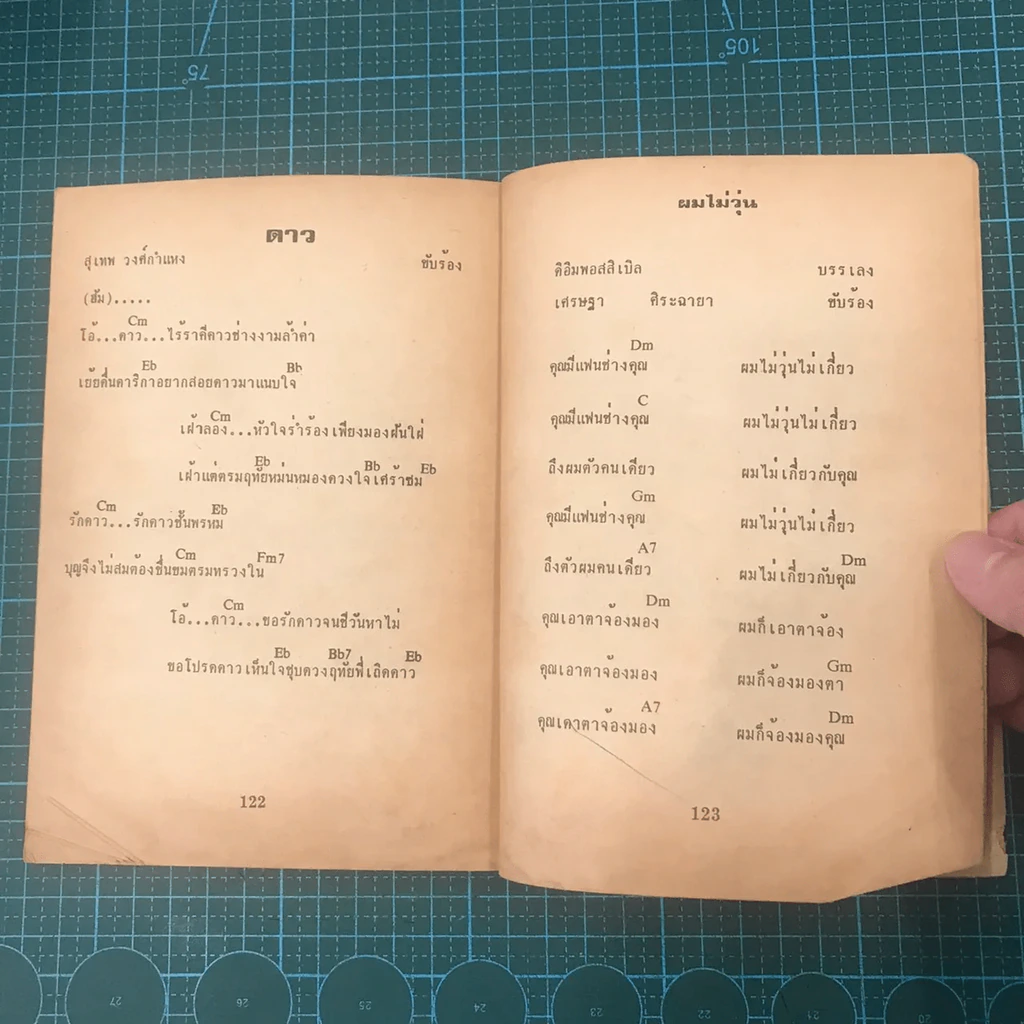 75°
105°
ดาว
สุเทพ วงศ์กำแหง ขับร้อง
(ฮัม).....
Cm
โอ้...ดาว...ไร้ราคีดาวช่างงามล้ำค่า
Eb Bb
เย้ยคืนดาริกาอยากสอยดาวมาแนบใจ
Cm
เฝ้าลอง...หัวใจร่ำร้องเพียงมองฝันใฝ่
Eb Bb Eb
เฝ้าแต่ตรมฤทัยหม่นหมองดวงใจเศร้าซม
Cm Eb
รักดาว...รักดาวชั้นพรหม
Cm Fm7
บุญจึงไม่สมต้องขื่นขมตรมทรวงใน
Cm
โอ้...ดาว...ขอรักดาวจนชีวันหาไม่
Eb Bb7 Eb
ขอโปรดดาวเห็นใจชุบดวงฤทัยพี่เถิดดาว
122
ผมไม่วุ่น
ดิอิมพอสสิเบิล บรรเลง
เศรษฐา ศิระฉายา ขับร้อง
Dm
คุณมีแฟนช่างคุณ ผมไม่วุ่นไม่เกี่ยว
C
คุณมีแฟนช่างคุณ ผมไม่วุ่นไม่เกี่ยว
ถึงผมตัวคนเดียว ผมไม่เกี่ยวกับคุณ
Gm
คุณมีแฟนช่างคุณ ผมไม่วุ่นไม่เกี่ยว
A7 Dm
ถึงตัวผมคนเดียว ผมไม่เกี่ยวกับคุณ
Dm
คุณเอาตาจ้องมอง ผมก็เอาตาจ้อง
Gm
คุณเอาตาจ้องมอง ผมก็จ้องมองตา
A7 Dm
คุณเอาตาจ้องมอง ผมก็จ้องมองคุณ
123
27 26 25 24 23 22 21 20